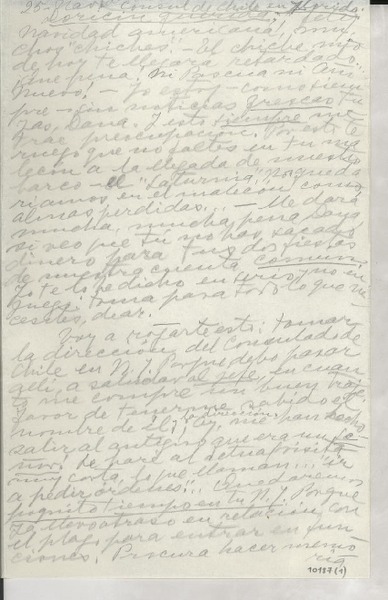 25- Nav. Consul de Chile en Florida.
querida,
Navidad americana, mu-
chos "chiches". - el chiche mío
de hoy te llegará retardado.
¡Qué pena! Ni Pascua ni Año
Nuevo! - Yo estoy - como siem-
pre - sin noticias frescas tu-
yas, Dana. Y esto siempre me
trae preocupación. Por esto te
ruego que no faltes en tu
a la llegada de nuestro
barco - el "Saturnia". Nos queda-
ríamos en el malecón como
almas perdidas... - Me dará
mucha, mucha pena
si veo que tú no has sacado
dinero para tus dos fiestas
de nuestra cuenta común.
Yo te lo he dicho en serio y no en
juego: toma para todo lo que ne-
cesites, dear.
Voy a rogarte esto: tomar
la dirección del Consulado de
Chile en N.Y. Porque debo pasar
allí a saludar al jefe, en cuan-
to me compre un buen traje.
Favor de tenerme sabido el
nombre de él y la dirección. me han hecho
salir al que era un
De paré al actual
muy corta, lo que llaman... "ir
a pedir órdenes"... Quedaremos
poquito tiempo en N.Y. Porque
ya llevo atraso en relación con
el plazo para entrar en fun-
ciones. Procura hacer memo-
ria
10187 (1)